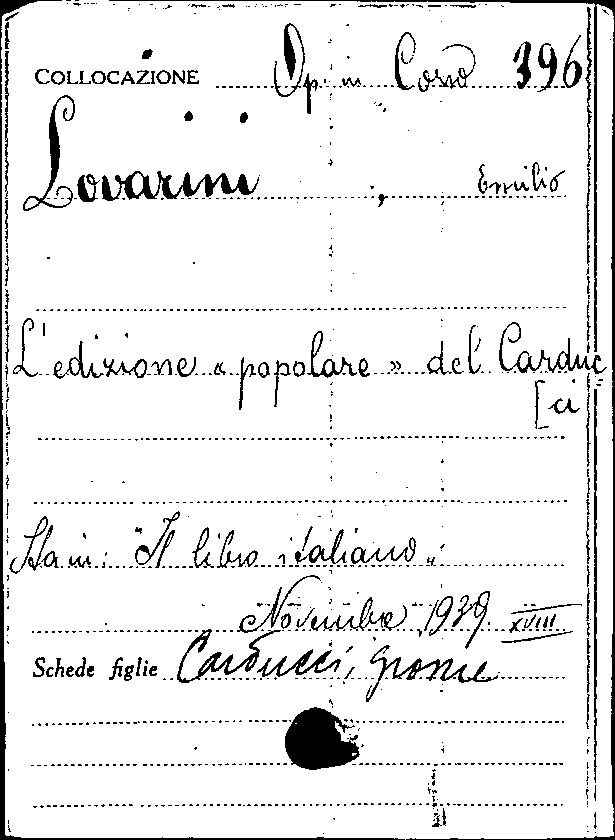 COLLOCAZIONE Op. in Corso 396
Lovarini, Emilio
L'edizione « popolare » del Carduc
[ci
Sta in: "Il libro italiano„
Novembre 1939 XVIII
Schede figlie Carducci, Giosue